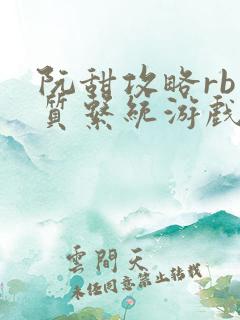 阮甜攻略rb
质系统游戏
雲間天
未经同意禁止转载